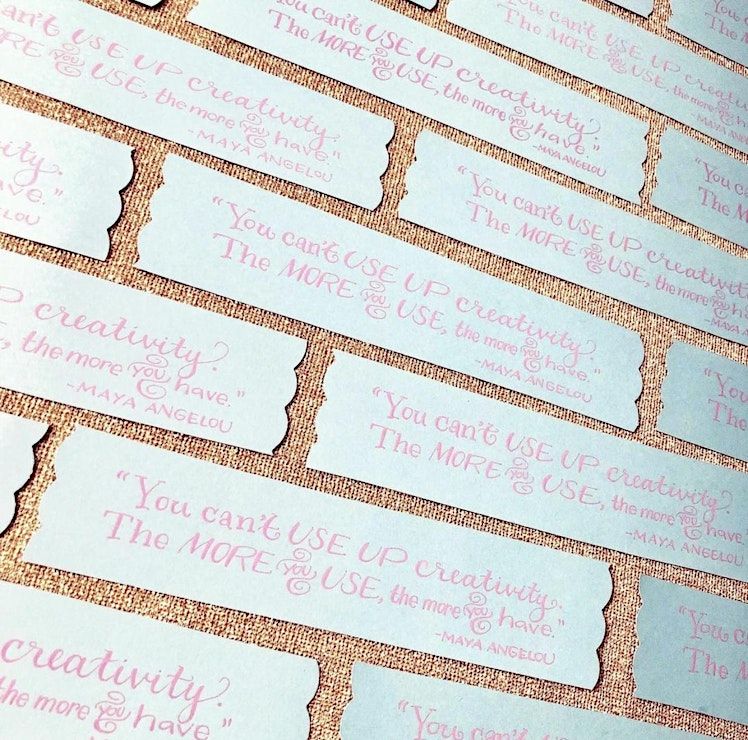 "You can't USE UP creativity.
The MORE YOU USE, the more YOU have."
-MAYA ANGELOU
can't USE UP creativity.
MORE YOU USE, the more YOU have."
-MAYA ANGELOU
can't USE UP creativity.
The MORE YOU USE, the more YOU
"You
The
have."
ANGELOU
"You can't USE UP creativity.
The MORE YOU USE, the more YOU have."
-MAYA ANGELOU
"You can't USE UP creativity.
The MORE YOU USE, the more YOU
-MAYA
"You
The
UP creativity.
the more YOU have."
-MAYA ANGELOU
"You can't USE UP creativity.
The MORE YOU USE, the more YOU have."
-MAYA ANGELOU
"You
The
"You can't USE UP creativity.
The MORE YOU USE, the more YOU have."
-MAYA ANGELOU
"You
The
creativity.
the more YOU have."
"You can't